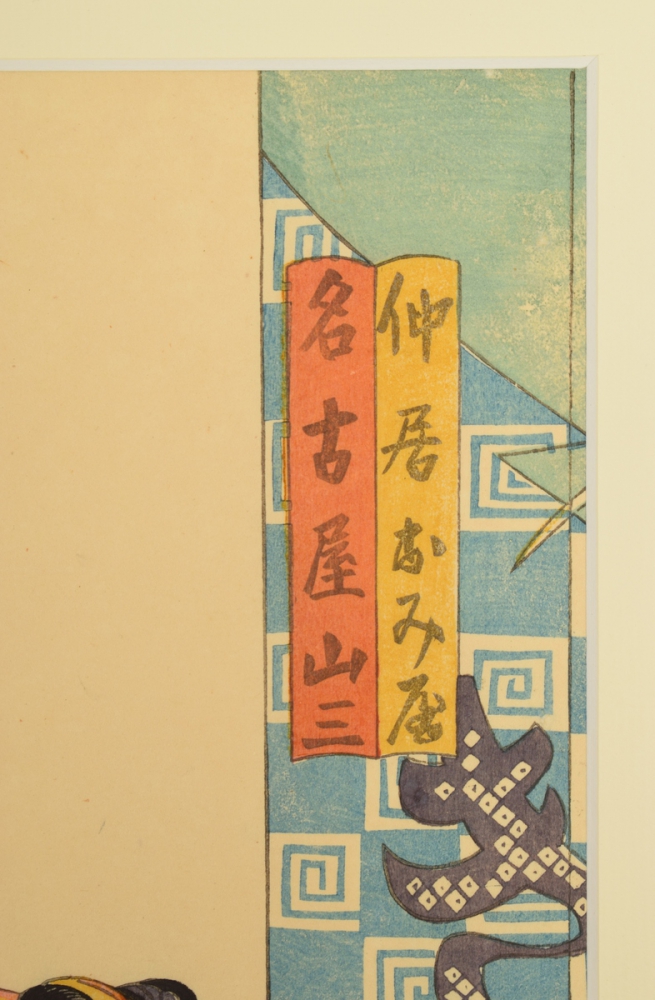 仲居おみ屋
名古屋山三